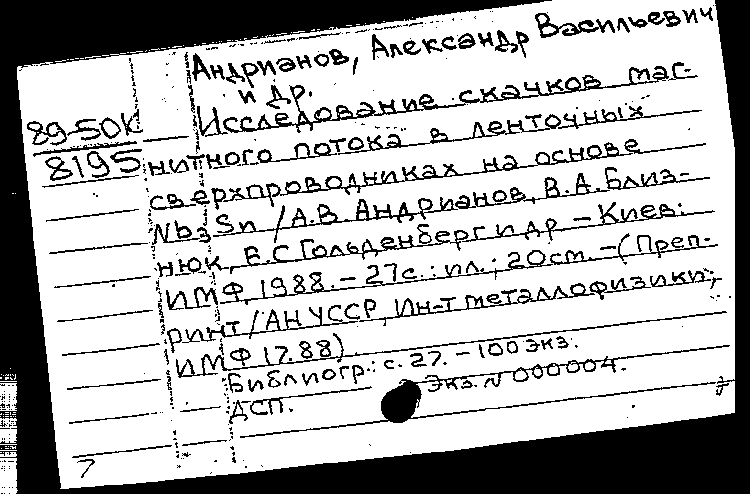 Андрианов, Александр Васильевич
и др.
89-50К
8195
Исследование скачков маг-
нитного потока в ленточных
сверхпроводниках на основе
Nb3Sn /А.В. Андрианов, В.А. Близ-
нюк, Е.С Гольденберг и др – Киев:
ИМФ, 1988. – 27с.: ил.; 20см. – (Преп-
ринт/АН УССР, Ин-т металлофизики;
ИМФ 17.88)
Библиогр.: с. 27. – 100 экз.
ДСП. Экз. N 000004.
7